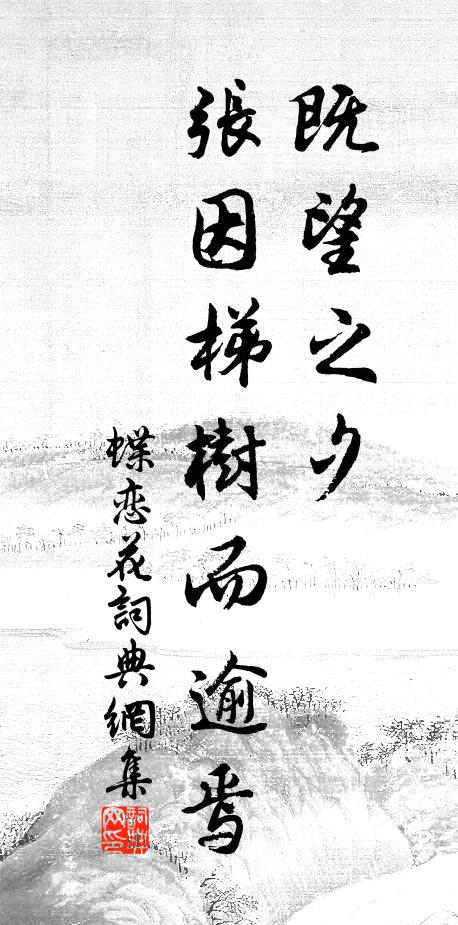 既望之夕
張因梯樹而逾焉
蝶恋花詞典網集